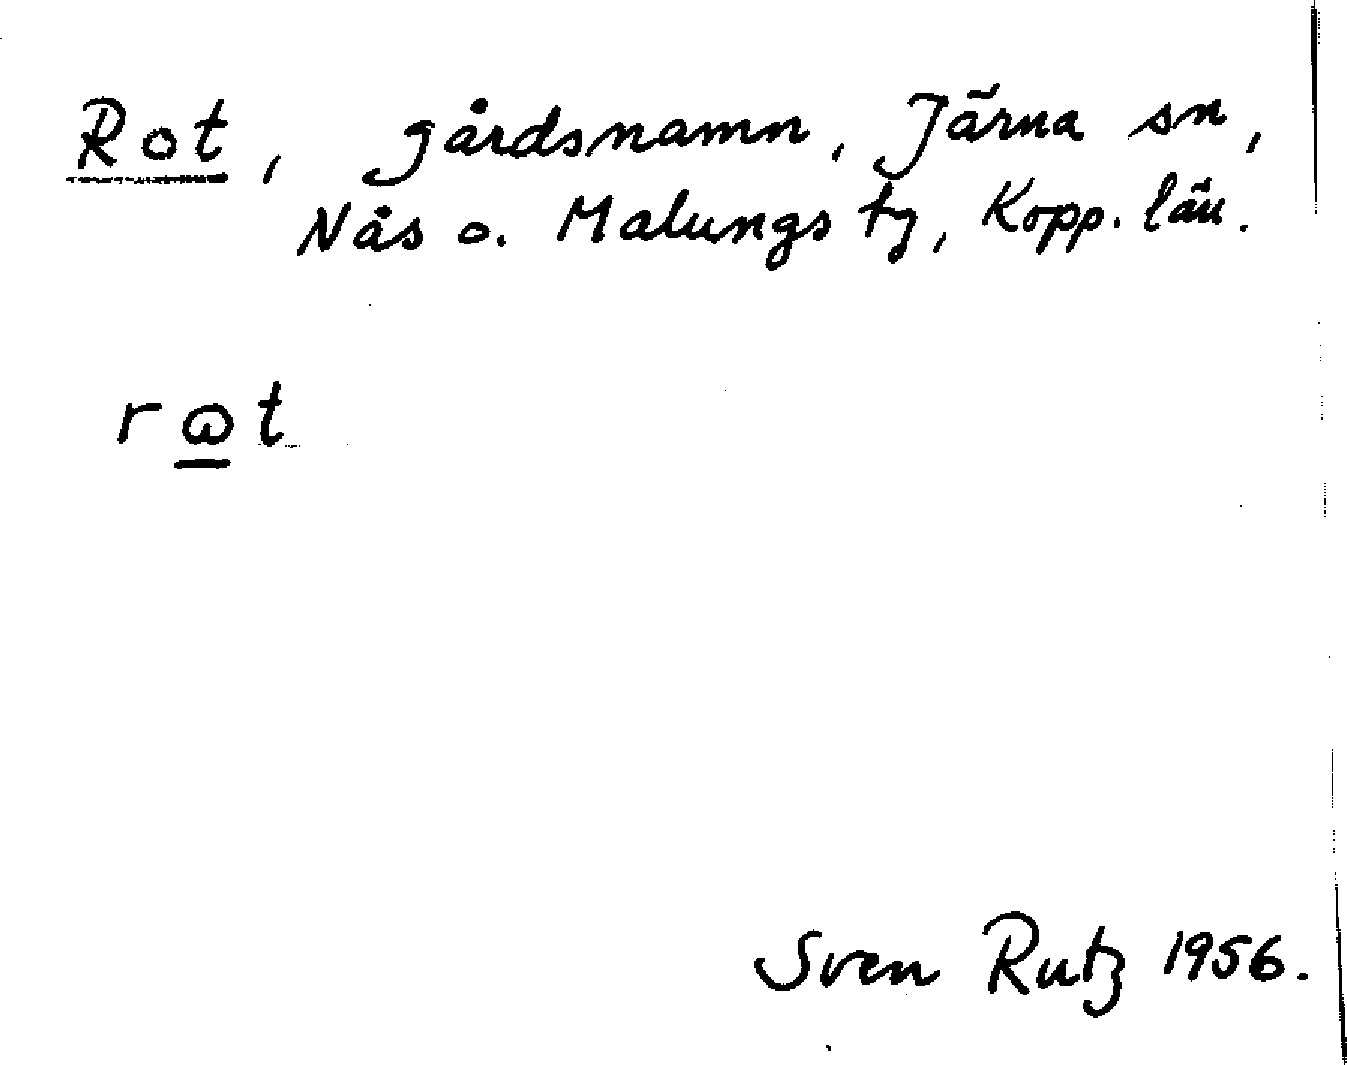 Rot, gårdsnamn, Järna sn,
Nås o. Malungs tg, Kopp. län.
rɷt
Sven Rutz 1956.